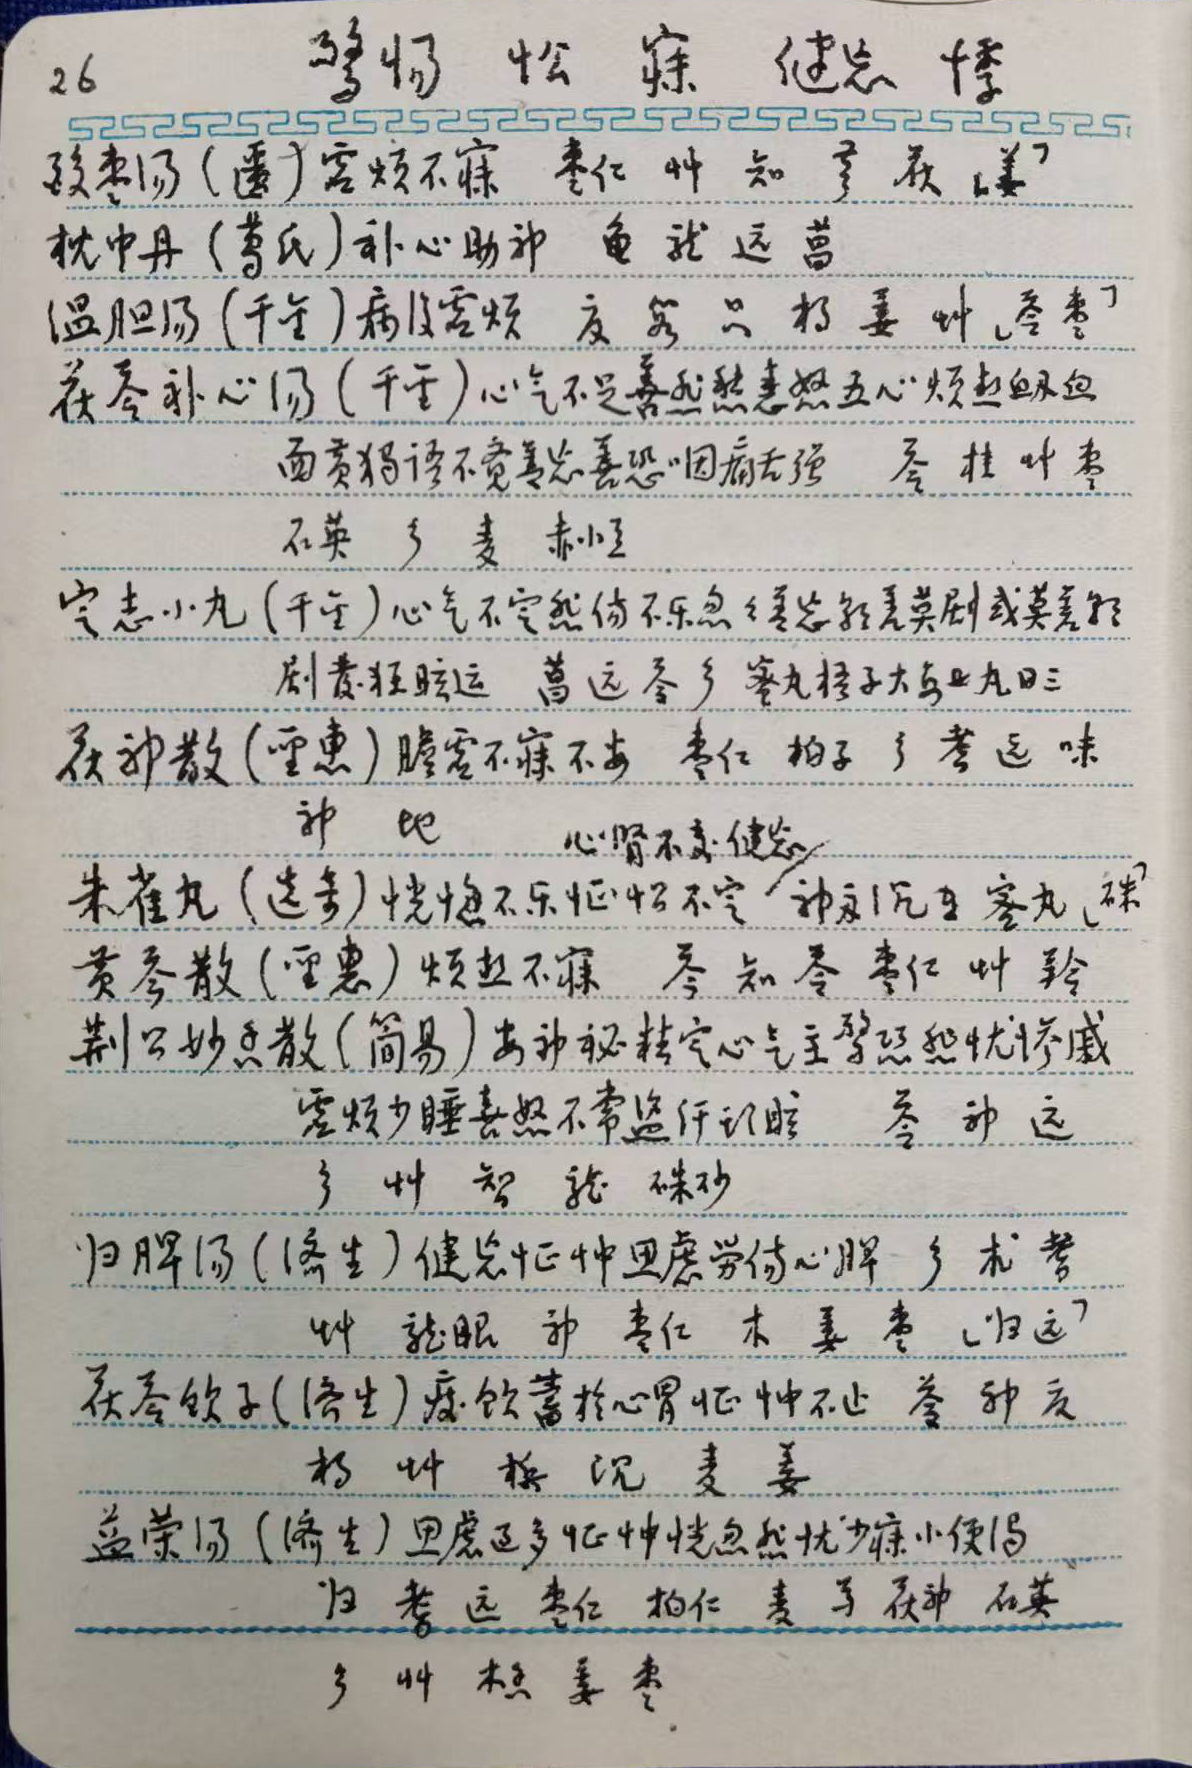 26
惊惕 忪 寐 健忘 悸
酸枣汤（匮）虚烦不寐 枣仁 艸 知 芎 茯「姜」
枕中丹（葛氏）补心助神 龟 龙 远 菖
温胆汤（千金）病后虚烦 夏 只 姜 艸「苓枣」
茯苓补心汤（千金）心气不足善愁恚怒五心烦热
面黄独语不觉善忘善恐咽痛舌强 苓 桂 艸 枣
石英 麦 赤小豆
定志小丸（千金）心气不定 不乐忽忽善忘
剧发狂眩运 菖 远 苓 蜜丸梧子大 丸日三
茯神散（圣惠）胆虚不寐不安 枣仁 柏子 耆 远 味
神 地
心肾不交健忘
朱雀丸（选奇）恍惚不乐怔忪不定 神 沉 蜜丸「硃」
黄芩散（圣惠）烦热不寐 芩 知 苓 枣仁 艸 羚
荆公妙香散（简易）安神秘精定心气主 恐 忧惨戚
虚烦少睡喜怒不常盗汗头眩 苓 神 远
艸 智 龙 硃砂
归脾汤（济生）健忘怔忡思虑劳伤心脾 术 耆
艸 龙眼 神 枣仁 木 姜 枣「归远」
茯苓饮子（济生）痰饮蓄于心胃怔忡不止 苓 神 夏
艸 槟 沉 麦 姜
益荣汤（济生）思虑过多怔忡恍忽 忧少寐小便浊
归 耆 远 枣仁 柏仁 麦 芍 茯神 石英
艸 木香 姜 枣